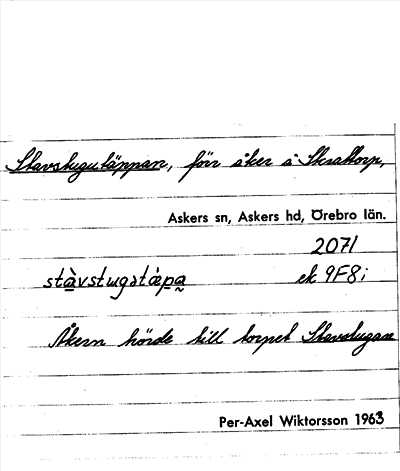 Stavstugutäppan, förr åker å Skrattorp,
Askers sn, Askers hd, Örebro län.
2071
stàvstugətàpa ek 9F8i
Åkern hörde till torpet Stavstugan
Per-Axel Wiktorsson 1963